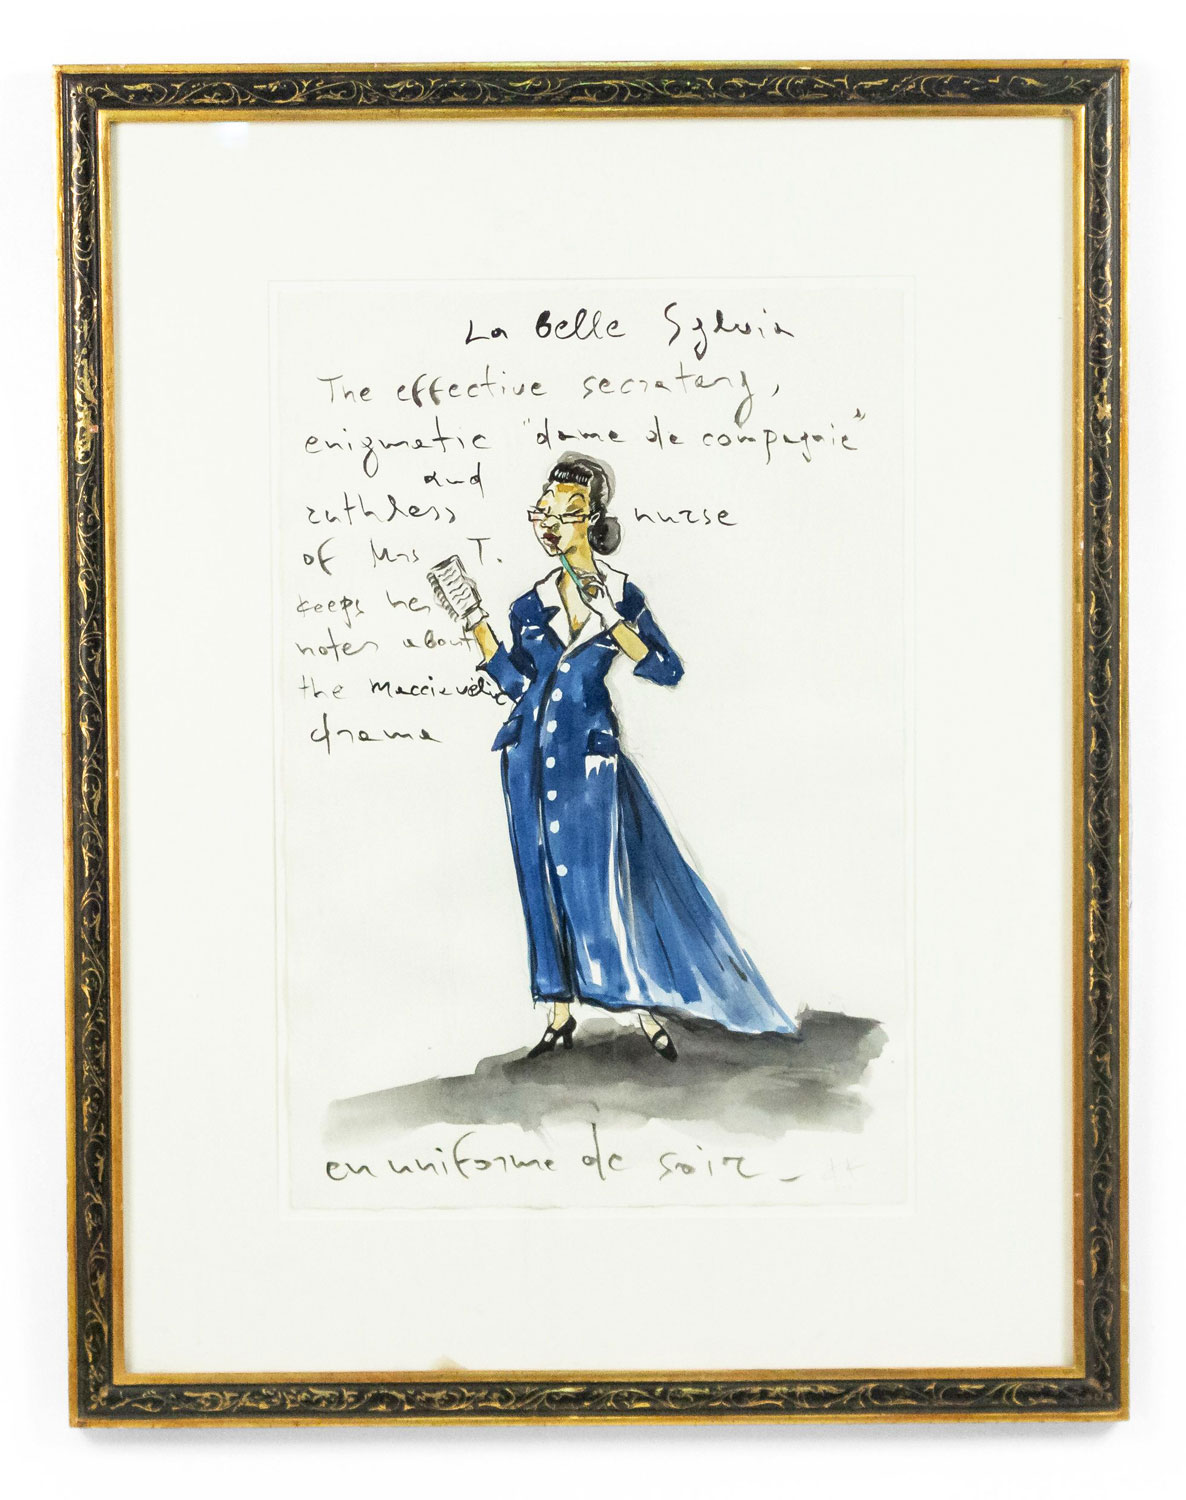 La Belle Sylvia
The effective secretary,
enigmatic "dame de compagnie"
and
ruthless nurse
of Mrs T.
keeps her
notes about
the Meccievélic
drama
en uniforme de soir